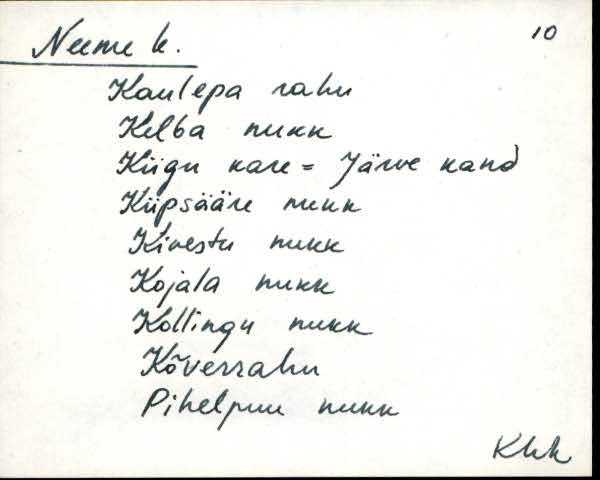 Neeme k. 10
Kaulepa rahu
Kelba nukk
Kiigu kare = Järve kand
Kiipsääre nukk
Kivestu nukk
Kojala nukk
Kollingu nukk
Kõverrahu
Pihelpuu nukk
Khk